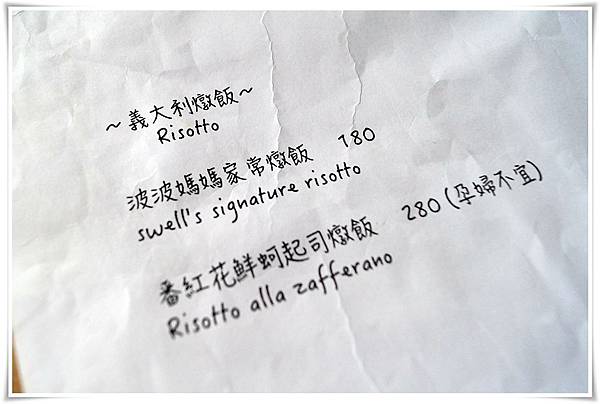 ～義大利燉飯～
Risotto
波波媽媽家常燉飯 180
swell's signature risotto
番紅花鮮蚵起司燉飯 280 (孕婦不宜)
Risotto alla zafferano